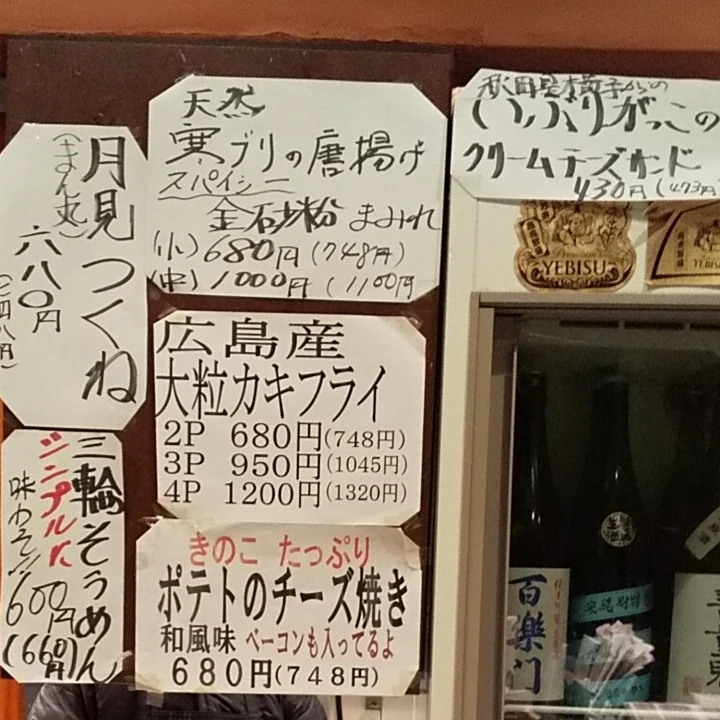 月見つくね
(きまん丸)
六八〇円
(七四八円)
三輪そうめん
シンプルに
味わって!!
600円
(660円)
天然
寒ブリの唐揚げ
スパイシー
金石砂粉まみれ
(小)680円(748円)
(中)1000円(1100円
広島産
大粒カキフライ
2P 680円(748円)
3P 950円(1045円)
4P 1200円(1320円)
きのこ たっぷり
ポテトのチーズ焼き
和風味 ベーコンも入ってるよ
680円(748円)
いぶりがっこの
クリームチーズサンド
430円(473円
YEBISU
YEBISU
百楽門